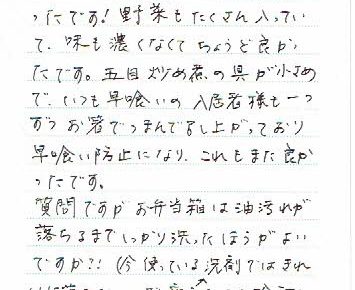 ったです！野菜もたくさん入ってい
て、味も濃くなくてちょうど良か
たです。五目炒め煮の具が小さめ
で、いつも早喰いの入居者様も一つ
ずつお箸でつまんで召し上がっており
早喰い防止になり、これもまた良か
ったです。
質問ですがお弁当箱は油汚れが
落ちるまでしっかり洗ったほうがよい
ですか?!（今使っている洗剤ではきれ